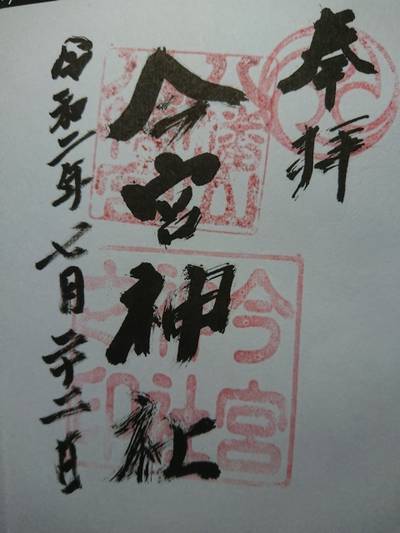 奉拝
今宮神社
令和二年七月二十二日
今宮
神社
之印